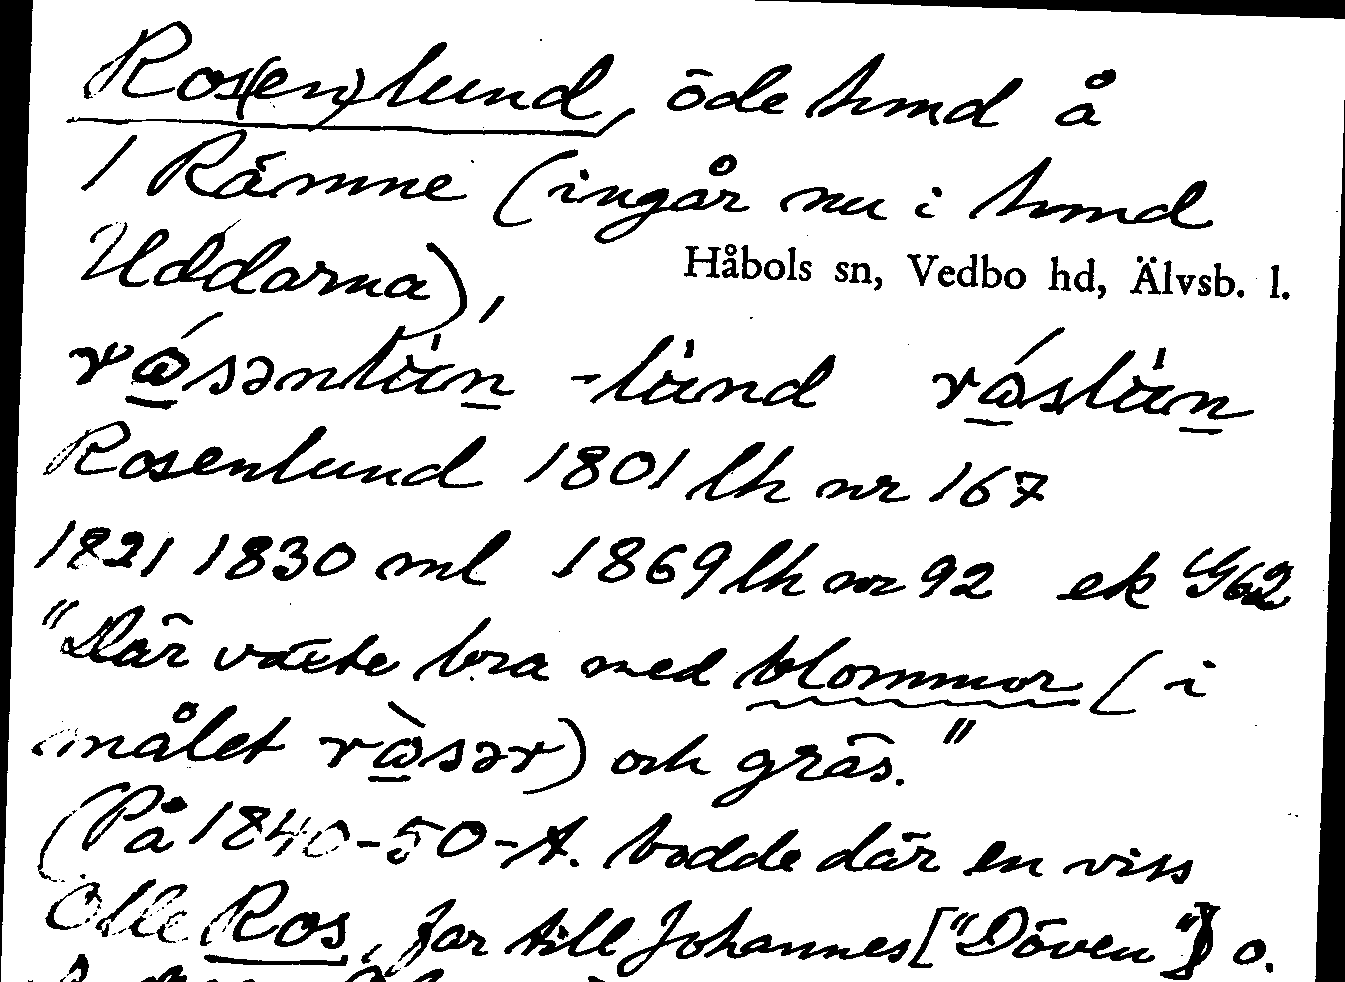 Ros(en)lund, öde hmd å
1 Rämne (ingår nu i hmd
Uddarna),
Håbols sn, Vedbo hd, Älvsb. l.
Rosenlund 1801 lh nr 167
1821 1830 ml 1869 lh nr 92 ek G62
"Där växte bra med blommor (i
målet ) och gräs."
(På 1840-50-t. bodde där en viss
Olle Ros, far till Johannes ["Döven"] o.